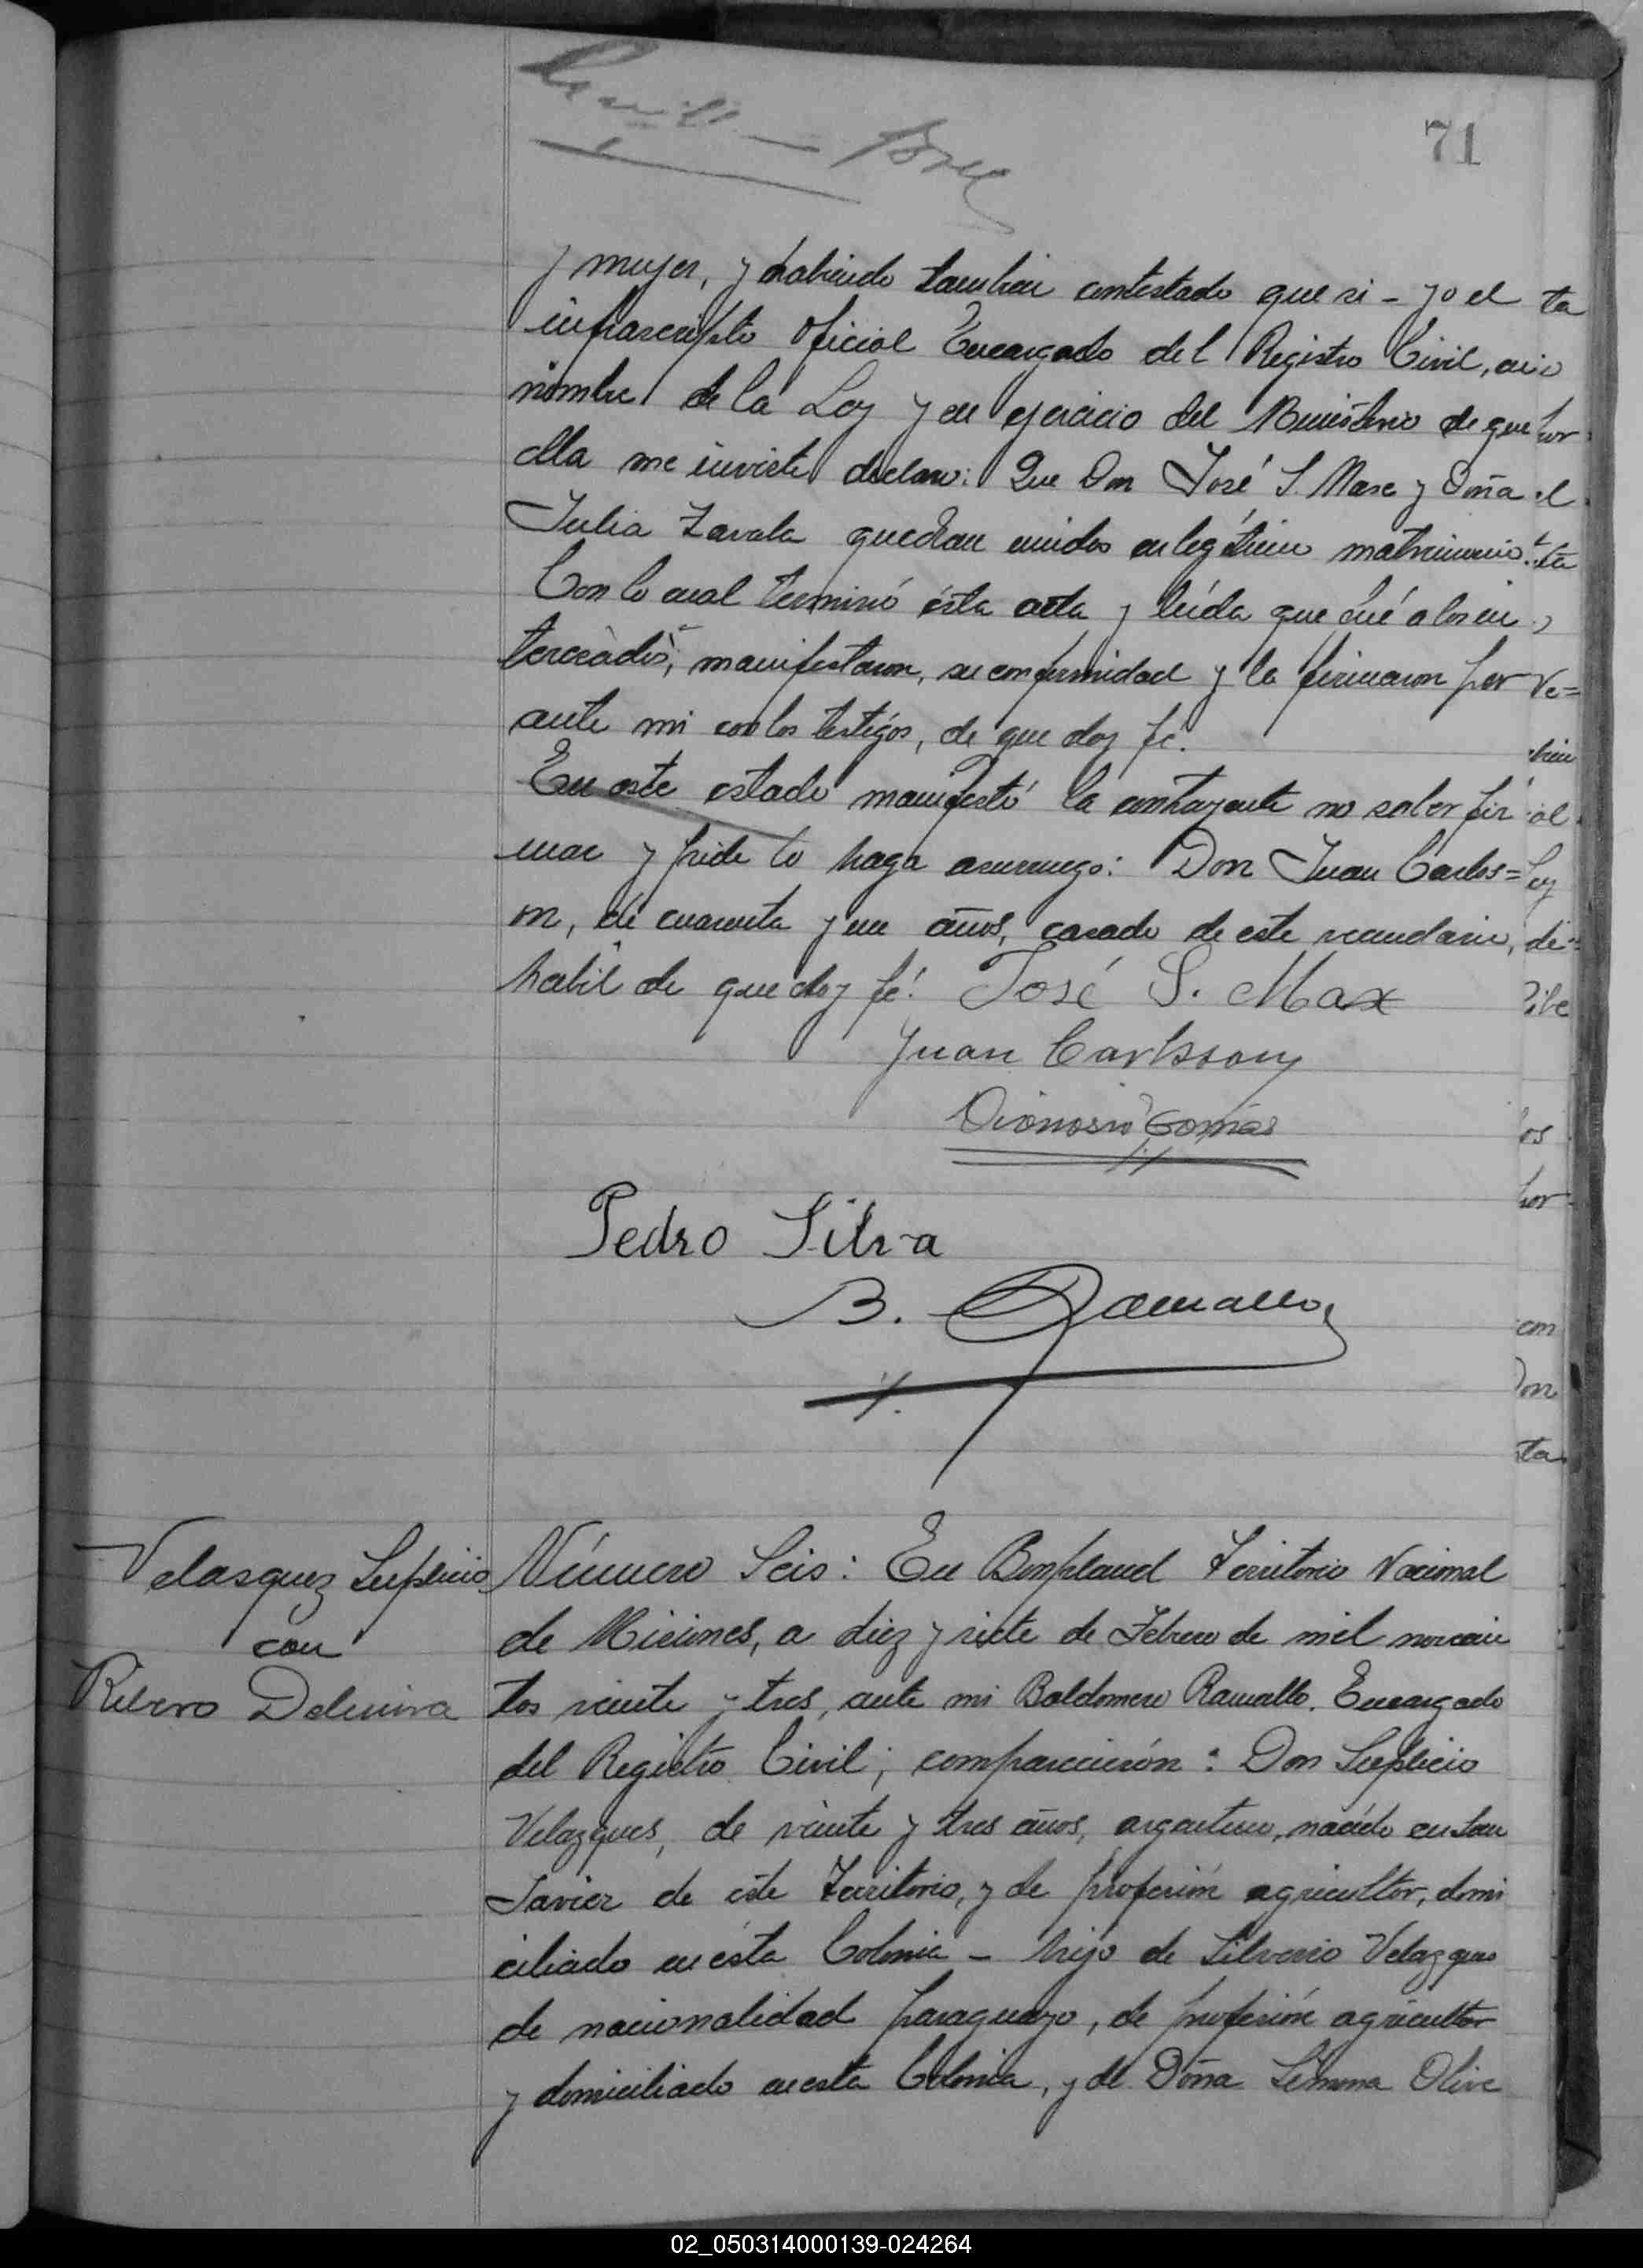 71
y mujer, y habiendo tambien contestado que si - yo el
infrascripto Oficial Encargado del Registro Civil, en
nombre de la Ley y en ejercicio del Ministerio de que
ella me inviste declaro: Que Don José S. Max y Doña
Julia Zavala quedan unidos en legítimo matrimonio.
Con lo cual terminó ésta acta y leída que fué a los in
teresados, manifestaron, su conformidad y la firmaron por
ante mi con los testigos, de que doy fé.
En este estado manifestó la contrayente no saber fir
mar y pide lo haga a su ruego: Don Juan Carlos=
on, de cuarenta y un años, casado de este vecindario,
habil de que doy fé. José S. Max
Juan Carlsson
Dionosio Gomes
Pedro Silva
B. Ramallo
Velasquez Suplicio
con
Ribero Delmira
Número Seis: En Bonpland Territorio Nacional
de Misiones, a diez y siete de Febrero de mil novecien
tos veinte y tres, ante mi Baldomero Ramallo. Encargado
del Registro Civil; comparecieron: Don Suplicio
Velazques, de veinte y tres años, argentino, nacido en San
Javier de este Territorio, y de profesión agricultor, domi
ciliado en ésta Colonia - hijo de Silverio Velazques
de nacionalidad paraguayo, de profesión agricultor
y domiciliado en esta Colonia, y de Doña Simona Olive
02_050314000139-024264